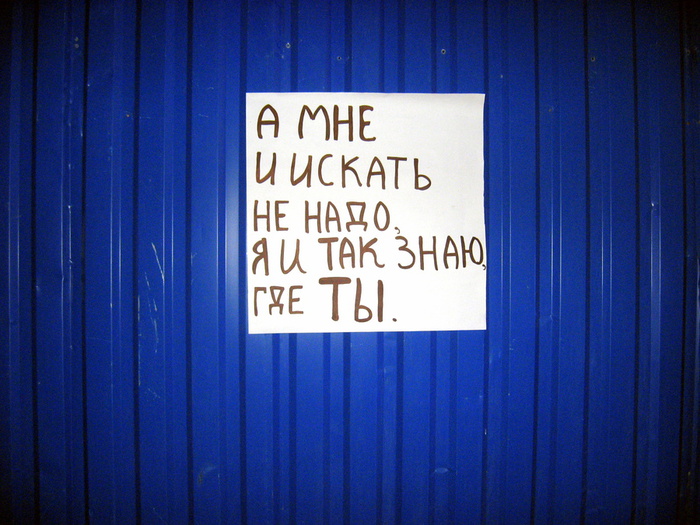 А МНЕ
И ИСКАТЬ
НЕ НАДО,
Я И ТАК ЗНАЮ,
ГДЕ ТЫ.